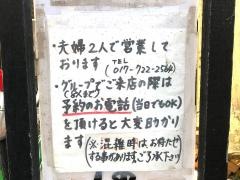 ・夫婦2人で営業して
おります (TEL 017-722-2564)
・グループでご来店の際は
(8人まで)
予約のお電話(当日でもOK)
を頂けると大変助かり
ます (※混雑時はお待たせ
する事があります。ご了承下さい)